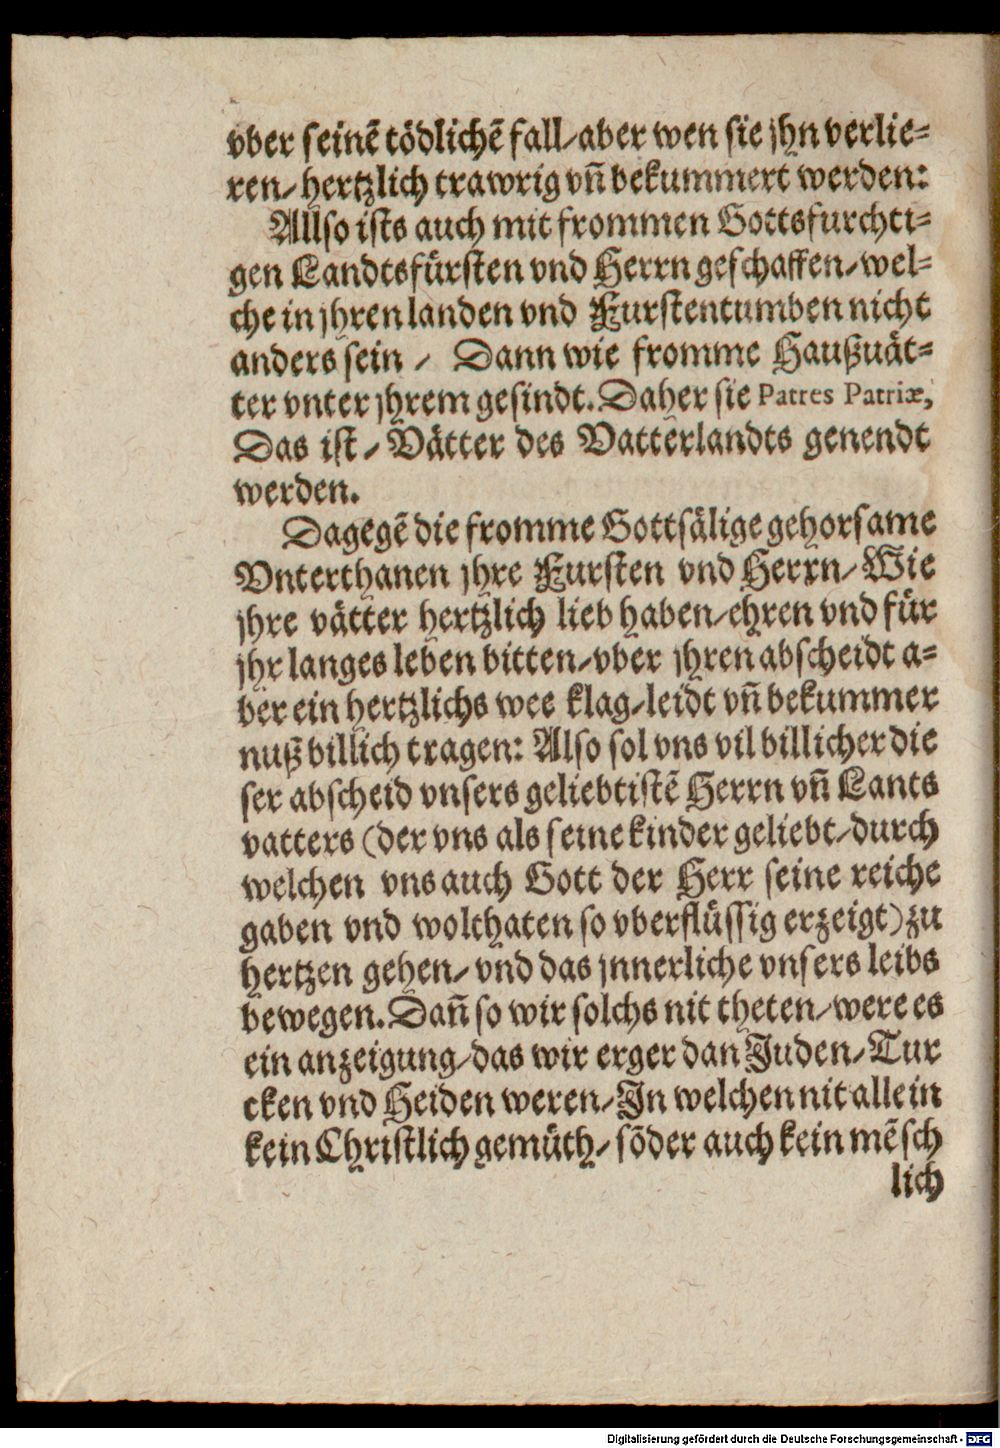 vber seinē tödlichē fall/aber wen sie jhn verlie=
ren/hertzlich trawrig vñ bekummert werden:
Allso ists auch mit frommen Gottsfurchti=
gen Landtsfürsten vnd Herrn geschaffen/wel=
che in jhren landen vnd Furstentumben nicht
anders sein / Dann wie fromme Haußuät=
ter vnter jhrem gesindt. Daher sie Patres Patriæ,
Das ist / Vätter des Vatterlandts genendt
werden.
Dagegē die fromme Gottsälige gehorsame
Vnterthanen jhre Fursten vnd Herrn/Wie
jhre vätter hertzlich lieb haben/ehren vnd für
jhr langes leben bitten/vber jhren abscheidt a=
ber ein hertzlichs wee klag/leidt vñ bekummer
nuß billich tragen: Also sol vns vil billicher die
ser abscheid vnsers geliebtistē Herrn vñ Lants
vatters (der vns als seine kinder geliebt/durch
welchen vns auch Gott der Herr seine reiche
gaben vnd wolthaten so vberflüssig erzeigt) zu
hertzen gehen/vnd das jnnerliche vnsers leibs
bewegen. Dañ so wir solchs nit theten/were es
ein anzeigung/das wir erger dan Juden/Tur
cken vnd Heiden weren/In welchen nit allein
kein Christlich gemüth/sōder auch kein mēsch
lich
Digitalisierung gefördert durch die Deutsche Forschungsgemeinschaft - DFG